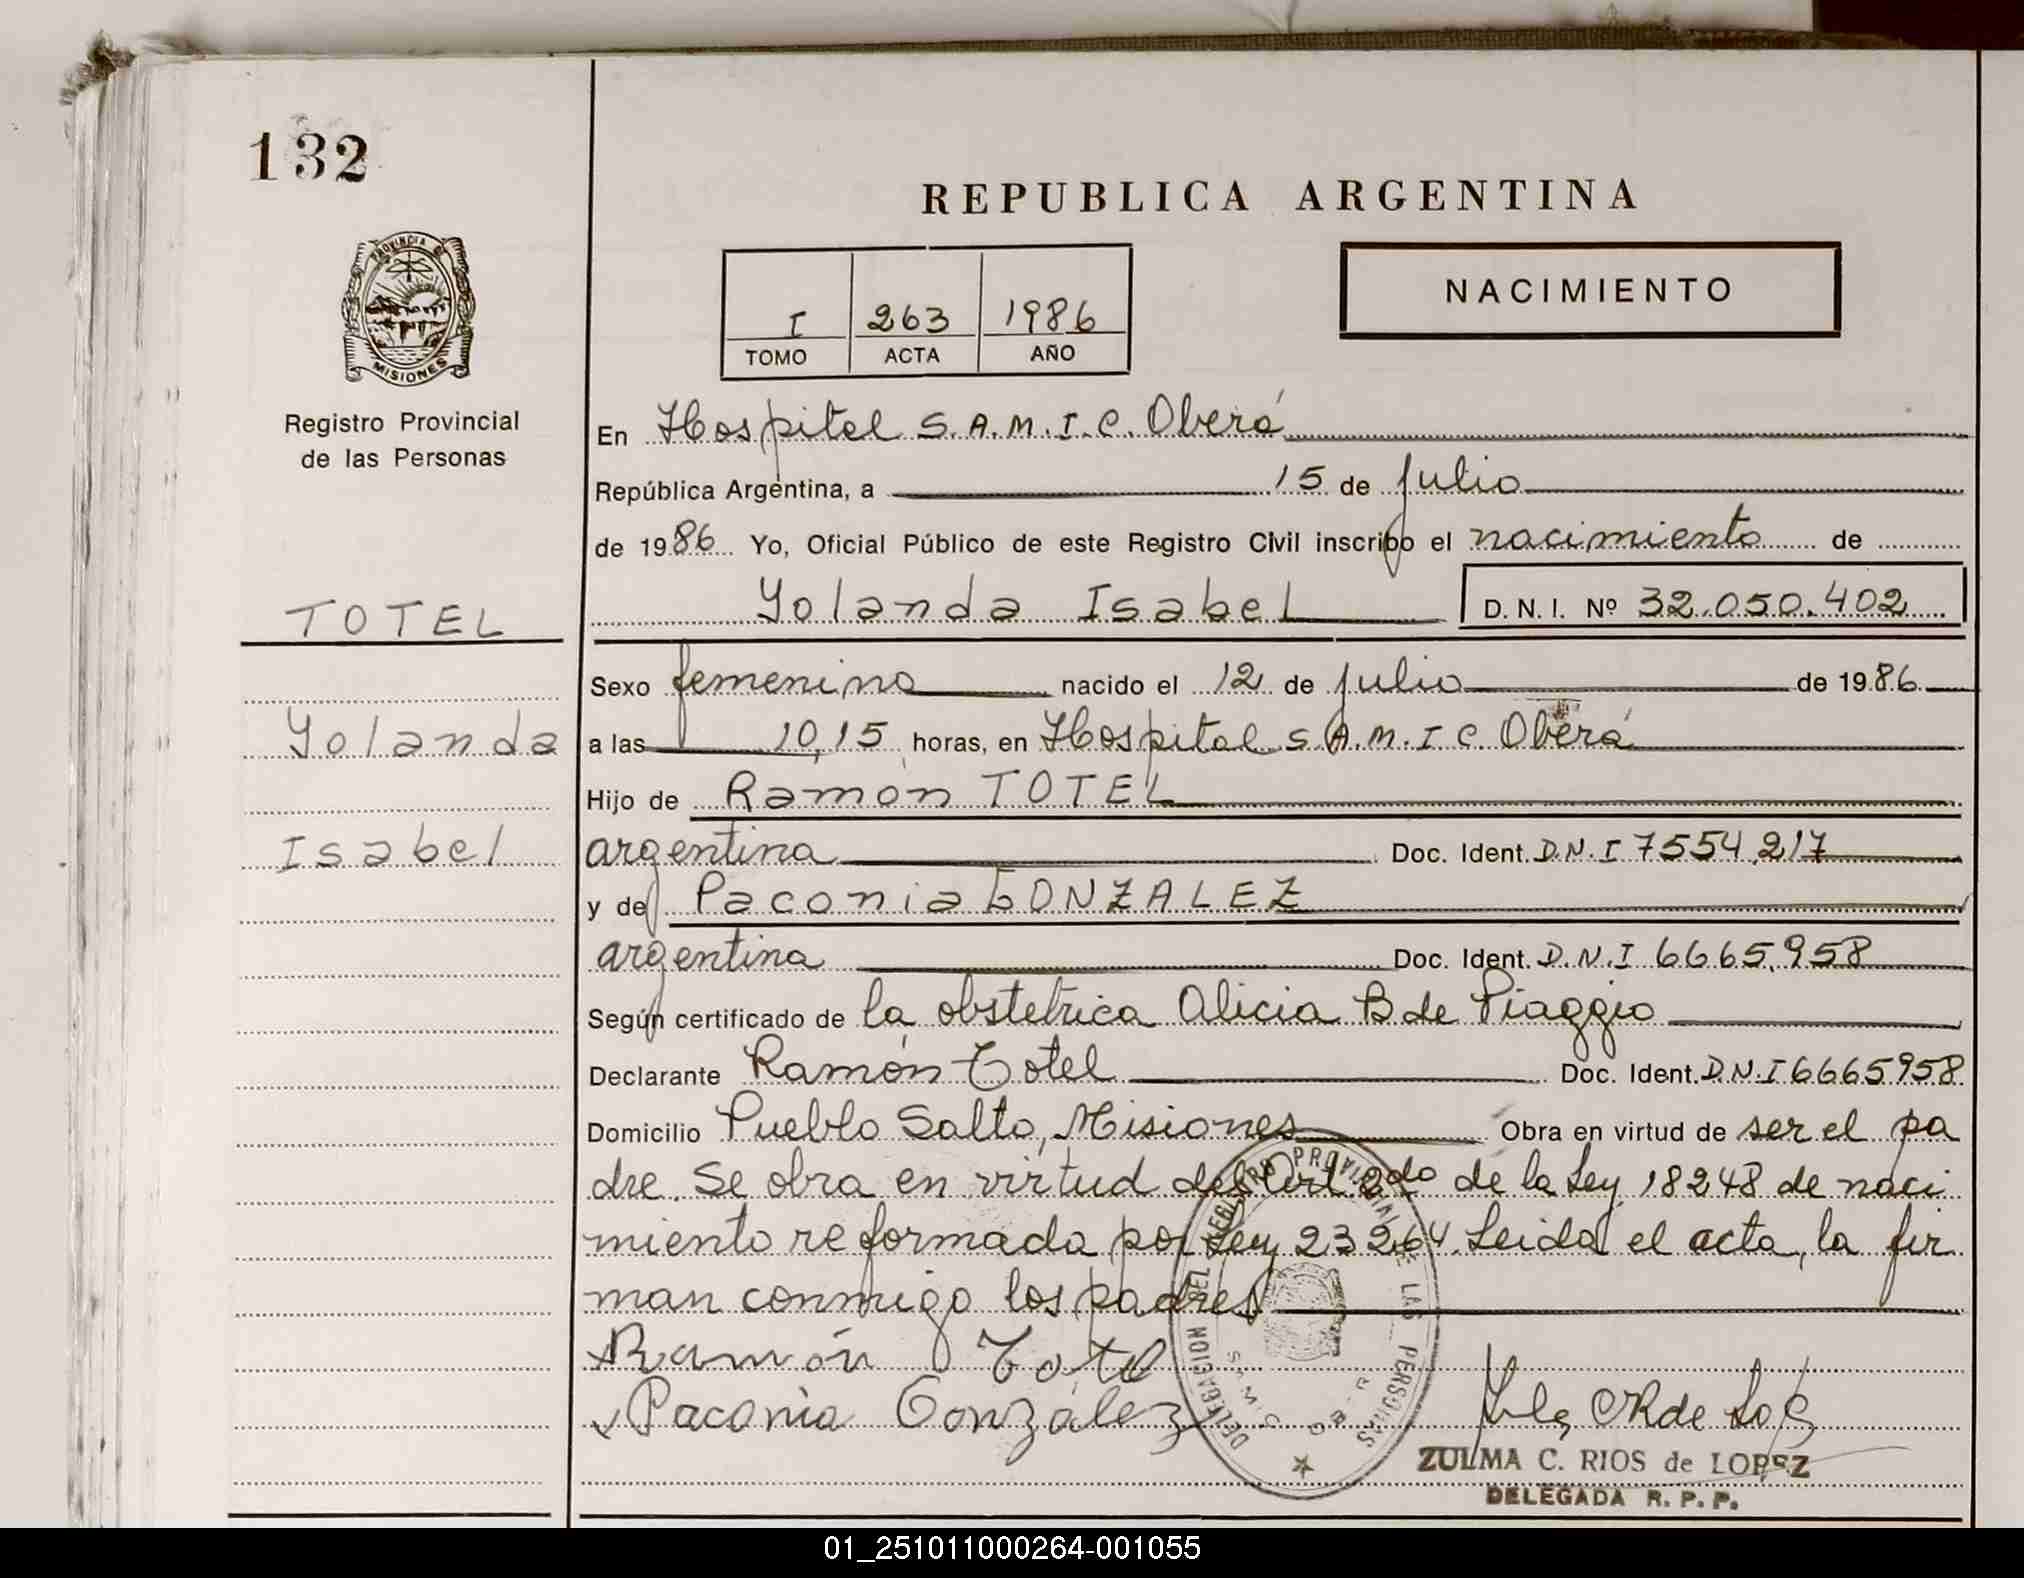 132
REPUBLICA ARGENTINA
PROVINCIA DE
MISIONES
Registro Provincial
de las Personas
I 263 1986
TOMO ACTA AÑO
NACIMIENTO
En Hospital S.A.M.I.C. Oberá
República Argentina, a 15 de julio
de 1986 Yo, Oficial Público de este Registro Civil inscribo el nacimiento de
TOTEL
Yolanda Isabel D. N. I. Nº 32.050.402
Sexo femenino nacido el 12 de julio de 1986
Yolanda
a las 10,15 horas, en Hospital S.A.M.I.C. Oberá
Hijo de Ramón TOTEL
Isabel
argentina Doc. Ident. D.N.I 7554.217
y de Paconia GONZALEZ
argentina Doc. Ident. D.N.I 6665.958
Según certificado de la obstetrica Alicia B de Piaggio
Declarante Ramón Totel Doc. Ident. D.N.I 6665958
Domicilio Pueblo Salto, Misiones Obra en virtud de ser el pa
dre. Se obra en virtud del Art 2do de la Ley 18248 de naci
miento reformada por Ley 23264. Leida el acta, la fir
man conmigo los padres
Ramón Totel
Paconia González
DELEGACION DEL REGISTRO PROVINCIAL DE LAS PERSONAS
ZULMA C. RIOS de LOPEZ
DELEGADA R. P. P.
01_251011000264-001055